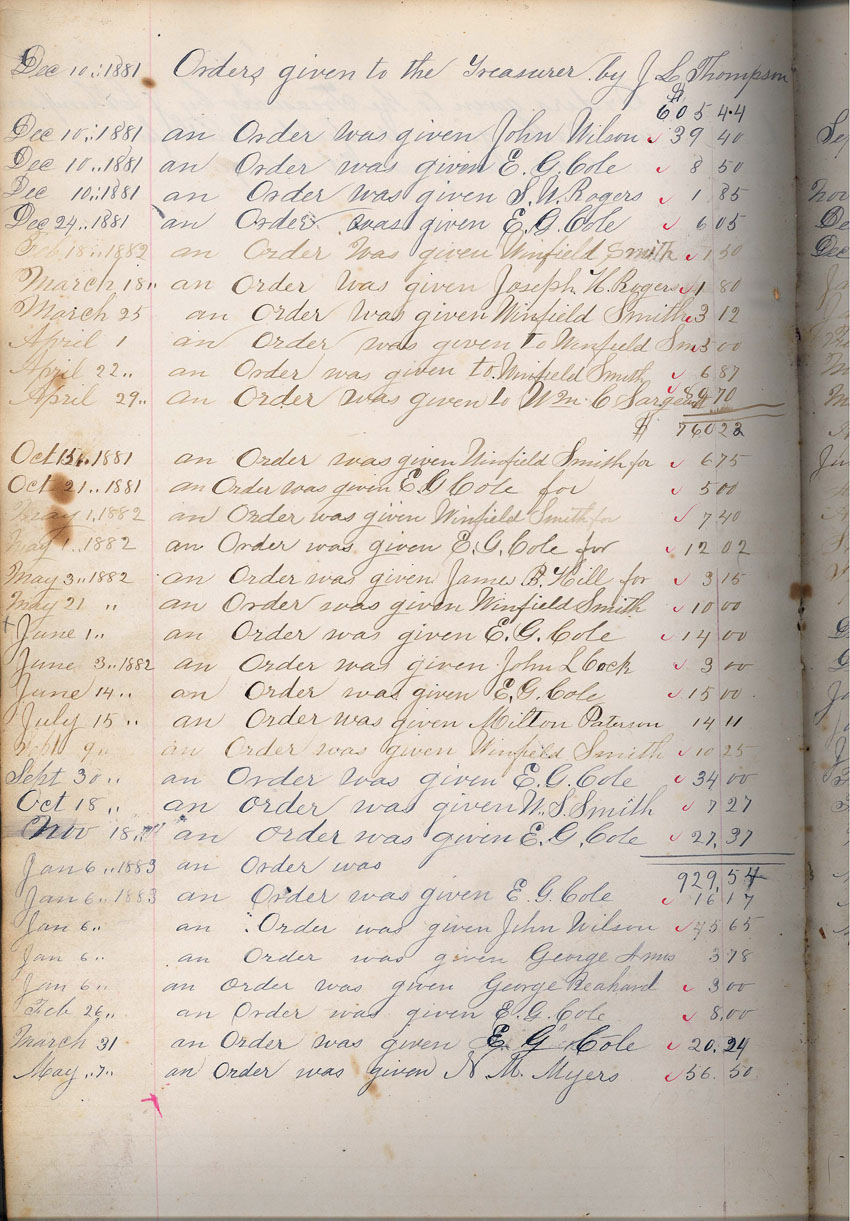 Dec 10,, 1881 Orders given to the Treasurer by J L Thompson
$ 605 44
Dec 10,, 1881 an Order was given John Wilson ✓ 39 40
Dec 10,, 1881 an Order was given E. G. Cole ✓ 8 50
Dec 10,, 1881 an Order was given S. W. Rogers ✓ 1 85
Dec 24,, 1881 an Order was given E. G. Cole ✓ 6 05
Feb 18,, 1882 an Order was given Winfield Smith ✓ 1 50
March 18,, an Order was given Joseph H. Rogers ✓ 1 80
March 25 an Order was given Winfield Smith ✓ 3 12
April 1 an Order was given to Winfield Sm 5 00
April 22,, an Order was given to Winfield Smith ✓ 6 87
April 29,, an Order was given to Wm C Sargeant 70
$ 760 23
Oct 15,, 1881 an Order was given Winfield Smith for ✓ 6 75
Oct 21,, 1881 an Order was given E. G Cole for ✓ 5 00
May 1, 1882 an Order was given Winfield Smith for ✓ 7 40
May 1,, 1882 an Order was given E. G. Cole for ✓ 12 02
May 3,, 1882 an Order was given James B. Hill for ✓ 3 15
May 21 ,, an Order was given Winfield Smith ✓ 10 00
+ June 1,, an Order was given E. G. Cole ✓ 14 00
June 3,, 1882 an Order was given John L Cock ✓ 3 00
June 14,, an Order was given E. G. Cole ✓ 15 00
July 15 ,, an Order was given Milton Paterson 14 11
Sept 9,, an Order was given Winfield Smith ✓ 10 25
Sept 30,, an Order was given E. G. Cole ✓ 34 00
Oct 18,, an order was given W. S. Smith ✓ 7 27
Nov 18,, an order was given E. G. Cole ✓ 27,37
Jan 6,, 1883 an Order was
929,54
Jan 6,, 1883 an Order was given E. G. Cole ✓ 16 17
Jan 6,, an Order was given John Wilson ✓ 45 65
Jan 6,, an Order was given George 3 78
Jan 6,, an order was given George Reahard ✓ 3 00
Feb 26,, an Order was given E. G. Cole ✓ 8,00
March 31 an Order was given E. G Cole ✓ 20,24
May ,,7,, an Order was given N. M. Myers ✓ 56 50